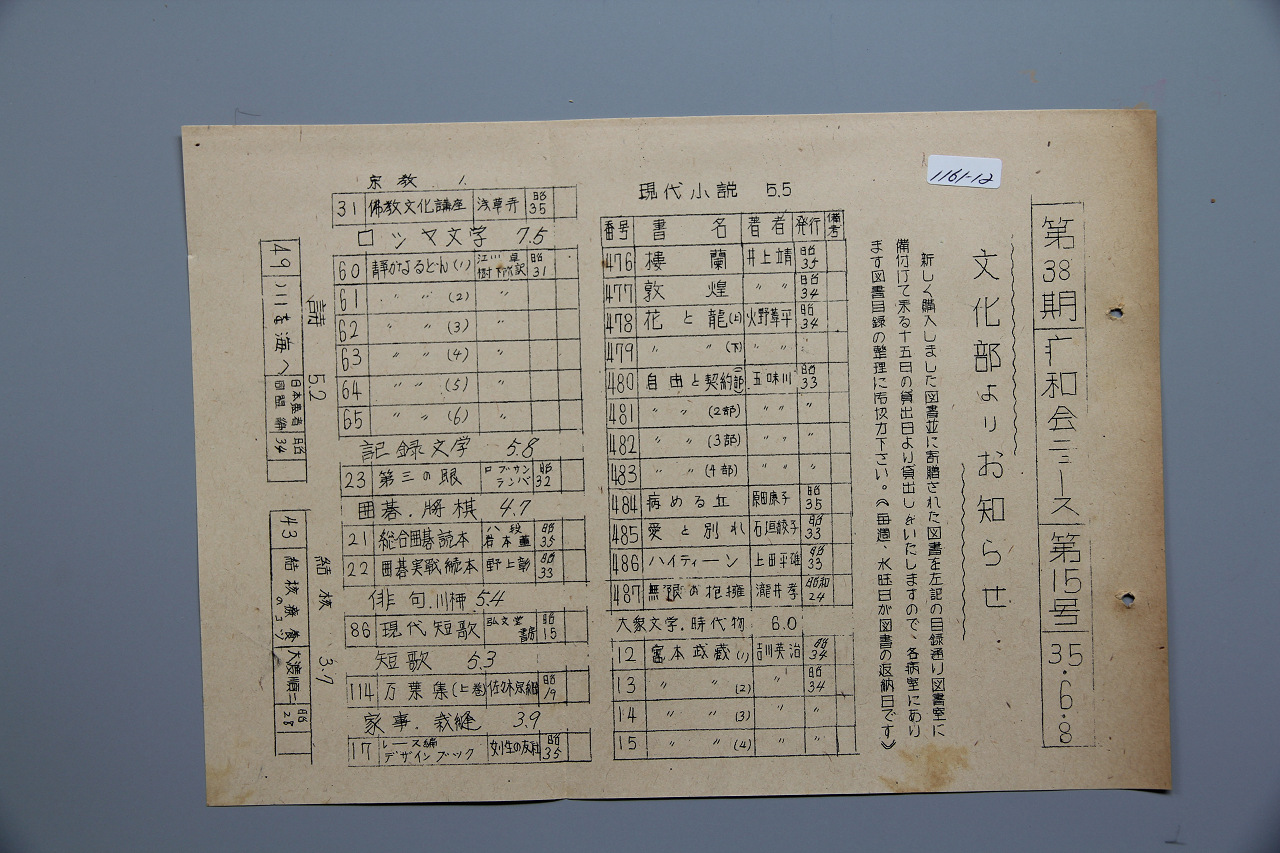 1161-12
第38期 疒和会ニュース 第15号 35.6.8
文化部よりお知らせ
新しく購入しました図書並に寄贈された図書を左記の目録通り図書室に
備付けて来る十五日の貸出日より貸出しをいたしますので、各病室にあり
ます図書目録の整理に御協力下さい。《毎週、水旺日が図書の返納日です》
現代小説 5.5
番号 書名 著者 発行 備考
476 楼蘭 井上靖 昭35
477 敦煌 〃〃 昭34
478 花と龍(上) 火野葦平 昭34
479 〃〃(下) 〃〃 〃
480 自由と契約(一部) 五味川 昭33
481 〃〃(2部) 〃〃 〃
482 〃〃(3部) 〃〃 〃
483 〃〃(4部) 〃〃 〃
484 病める丘 原田康子 昭35
485 愛と別れ 石垣綾子 昭33
486 ハイティーン 上田平雄 昭33
487 無限の抱擁 瀧井孝 昭和24
大衆文学.時代物 6.0
12 宮本武蔵(1) 吉川英治 昭34
13 〃〃(2) 〃 昭34
14 〃〃(3) 〃 〃
15 〃〃(4) 〃 〃
宗教 1.
31 佛教文化講座 浅草寺 昭35
ロツヤ文学 7.5
60 静かなるドン(1) 江川卓 樹下節訳 昭31
61 〃〃(2) 〃
62 〃〃(3) 〃
63 〃〃(4) 〃
64 〃〃(5) 〃
65 〃〃(6) 〃
記録文学 5.8
23 第三の眼 ロブサンランパ 昭32
囲碁.将棋 4.7
21 総合囲碁読本 八段 岩本薫 昭35
22 囲碁実戦読本 野上彰 昭33
俳句.川柳 5.4
86 現代短歌 弘文堂書房 昭15
短歌 5.3
114 万葉集(上巻) 佐々木信綱 昭19
家事.裁縫 3.9
17 レース編デザインブック 女学生の友社 昭35
詩 5.2
49 を海へ 日本患者同盟 昭34
結核 3.7
43 結核療養のコツ 大渡順二 昭28